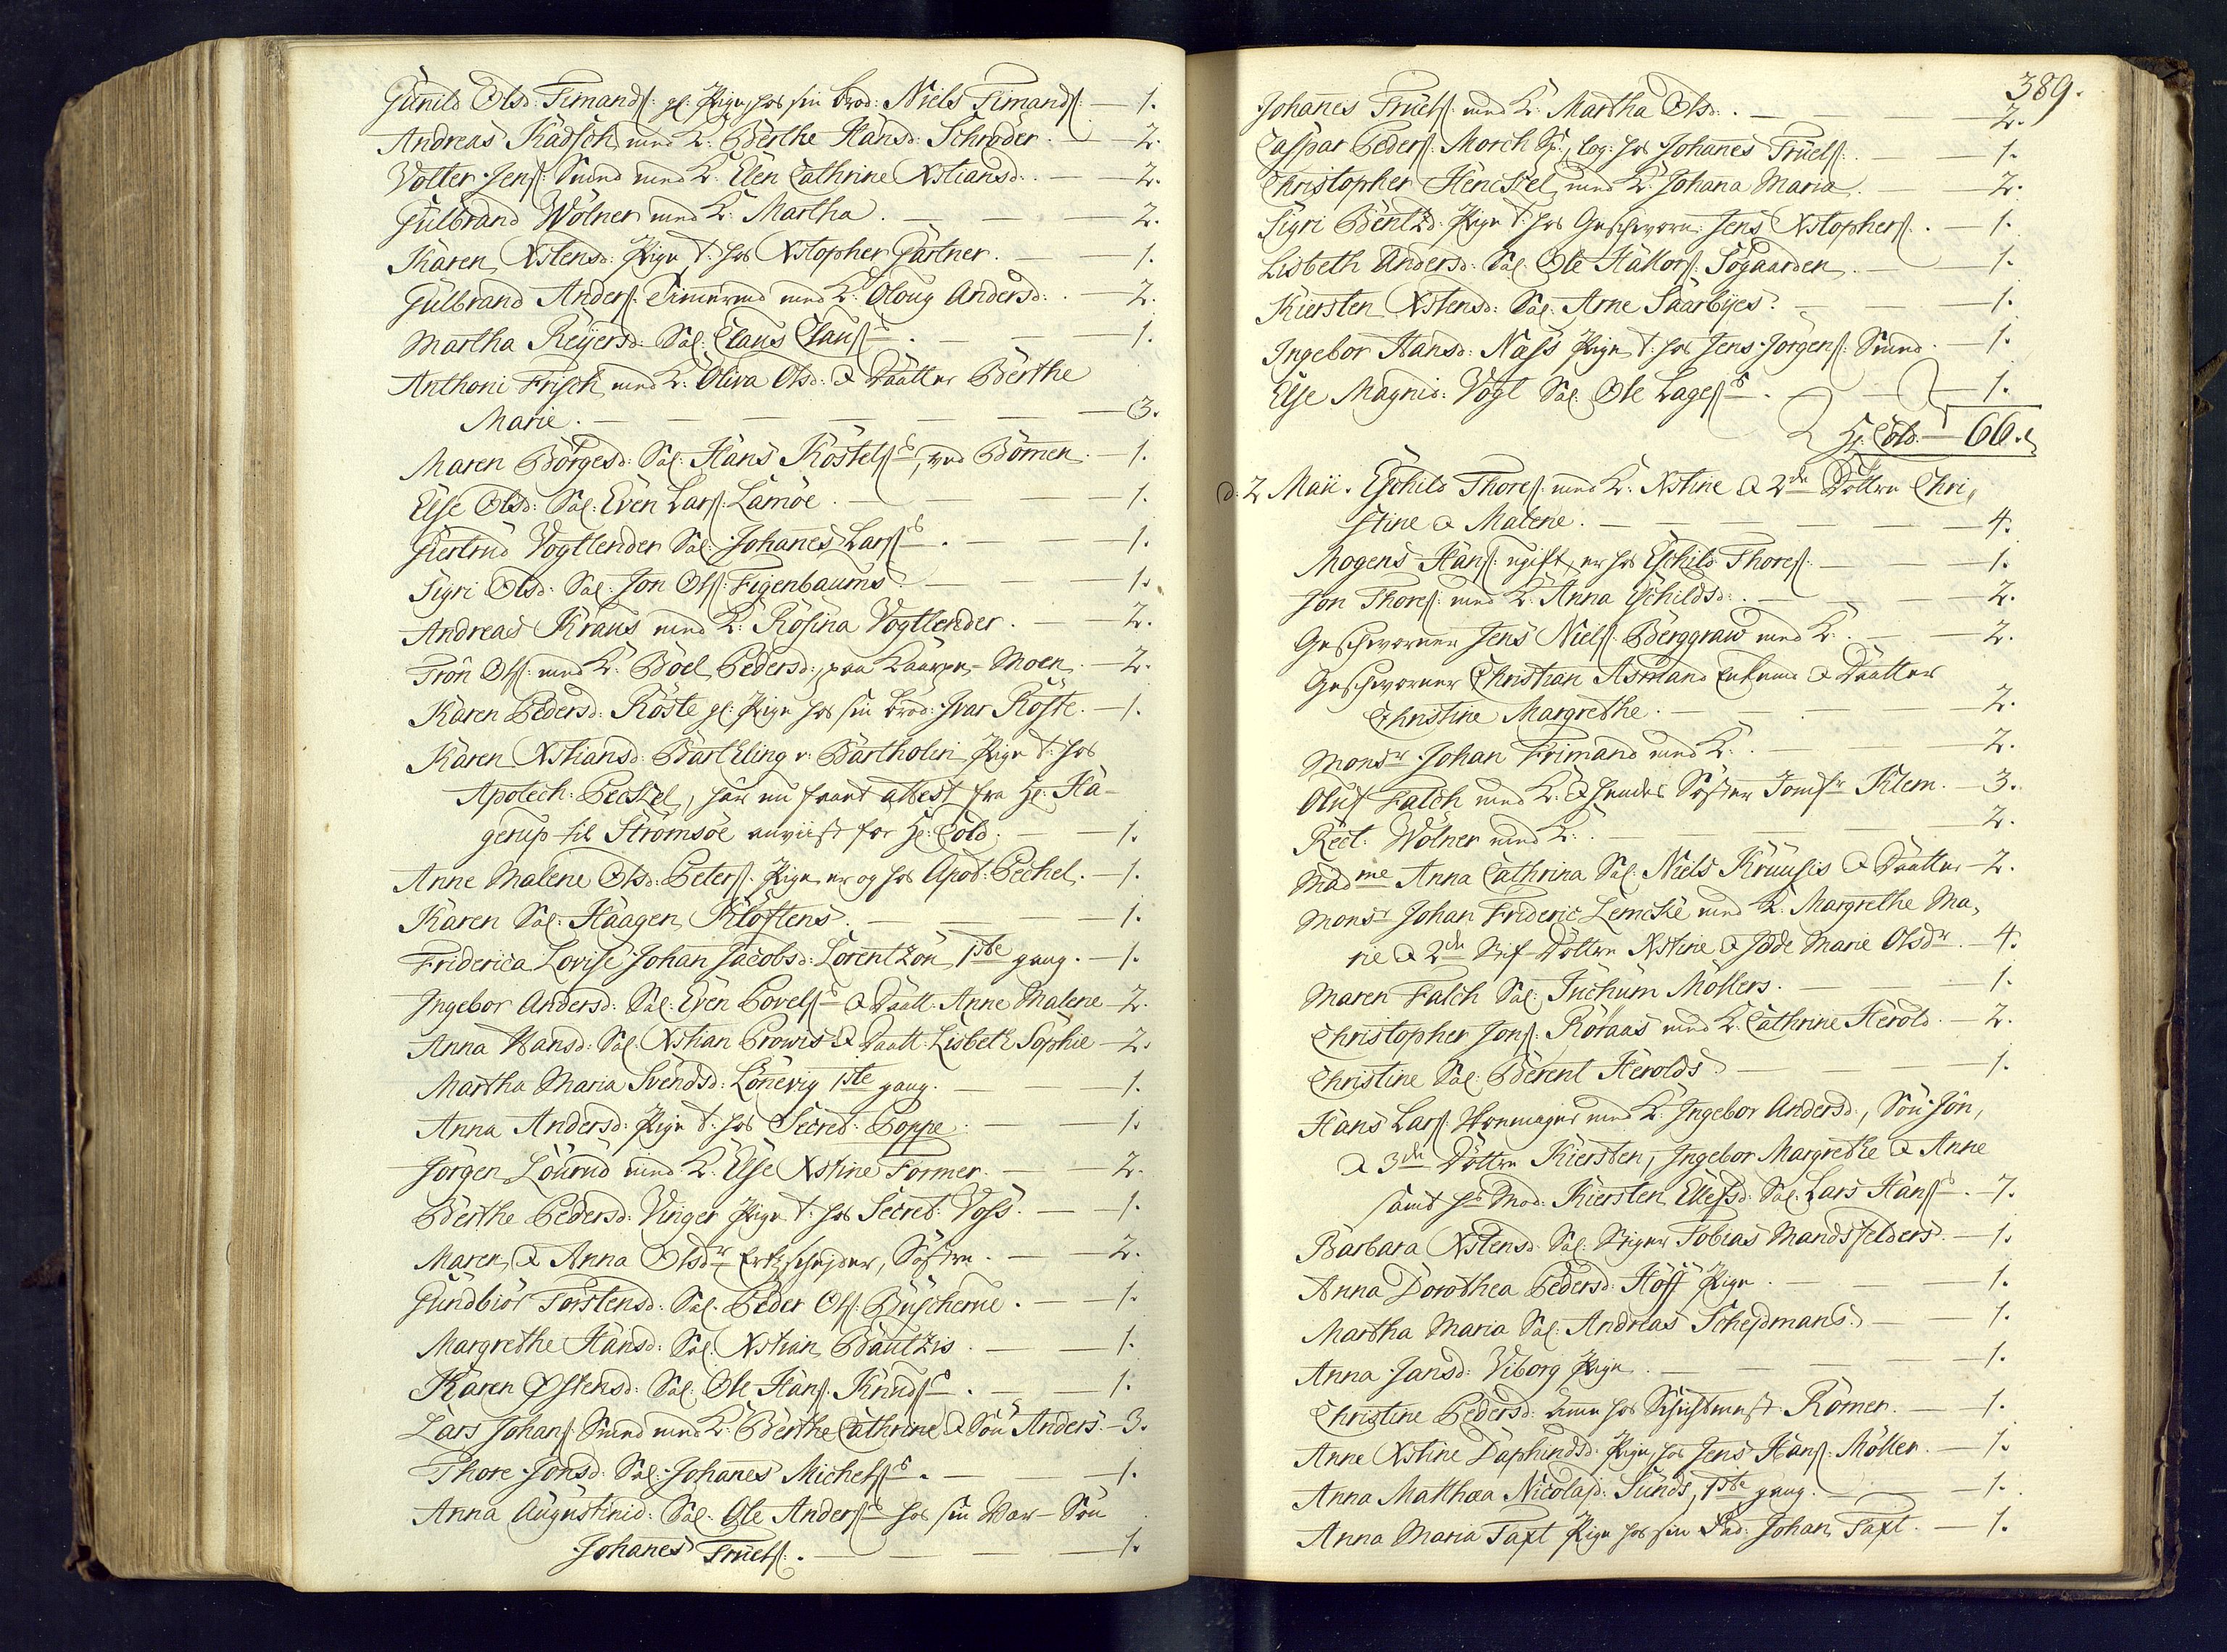 Gunild Olsd: Timands: gl: Pige, hos sin brod: Niels Timands: — 1.
Andreas Kädsch med K: Berthe Hansd: Schröder. — 2.
Volter Jens: Smed med K: Elen Cathrine Xstiansd: — 2.
Gulbrand Wölner med K: Martha. — 2.
Karen Xstensd: Pige t: hos Xstopher Gärtner. — 1.
Gulbrand Anders: Timermd med K: Oloug Andersd: — 2.
Martha Reyersd: Sal: Claus Claus — 1.
Anthoni Frisch med K: Oliva Olsd: & Daatter Berthe
Marie. — 3.
Maren Börgesd: Sal: Hans Köstels, ved Bommen. — 1.
Else Olsd: Sal: Even Lars: Lamöe. — 1.
Giertrud Vogtlender Sal: Johanes Lars — 1.
Sigri Olsd: Sal: Jon Ols: Figenbaums — 1.
Andreas Kraus med K: Rosina Vogtlender. — 2.
Tron Ols: med K: Böel Pedersd: paa Moen. — 2.
Karen Pedersd: Röste gl: Pige hos sin brod: Ivar Röste. — 1.
Karen Xstiansd: Bartling v: Bartholin Pige t: hos
Apotech: Peckel, har nu faaet attest fra Hr: Ha-
gerup til Strömsöe anviist for Hr: Cold. — 1.
Anne Malene Olsd: Peters: Pige er og hos Apod: Pechel. — 1.
Karen Sal: Haagen Kloftens. — 1.
Friderica Lovise Johan Jacobsd: Lorentzon 1ste gang. — 1.
Ingebor Andersd: Sal: Even Povels & Daatt: Anne Malene — 2.
Anna Hansd: Sal: Xstian Prowis & Daatt: Lisbeth Sophie — 2.
Martha Maria Svendsd: Lönevig 1ste gang. — 1.
Anna Andersd: Pige t: hos Secret: Poppe. — 1.
Jörgen Lourud med K: Else Xstine Former. — 2.
Berthe Pedersd: Vinger Pige t: hos Secret: Voss. — 1.
Maren & Anna Olsdr Ertzscheyder, Söstre. — 2.
Gundbiör Torstensd: Sal: Peder Ols: Buscherue. — 1.
Margrethe Hansd: Sal: Xstian Bautzis. — 1.
Karen Østensd: Sal: Ole Hans: Knuds — 1.
Lars Johans: Smed med K: Berthe Cathrine & Sön Anders. — 3.
Thore Jonsd: Sal: Johanes Michels — 1.
Anna Augustinid: Sal: Ole Anders hos sin Vær-Sön
Johanes Truels: — 1.
389.
Johanes Truels: med K: Martha Olsd: — 2.
Caspar Peders: Morch log: hos Johanes Truels: — 1.
Christopher Henckel med K: Johana Maria. — 2.
Sigri Bentzd: Pige t: hos Geschworn: Jens Xstophers: — 1.
Lisbeth Andersd: Sal: Ole Halvors: Sögaarden. — 1.
Kiersten Xstensd: Sal: Arne Saarbyes. — 1.
Ingebor Hansd: Næss Pige t: hos Jens Jörgens: Smed. — 1.
Else Magnid: Vogt Sal: Ole Lages — 1.
Hr: Cold — 66.
d. 2 Maii. Eschild Thores: med K: Xstine & 2de Döttre Chri,
stine & Malene. — 4.
Mogens Hans: ugift, er hos Eschild Thores: — 1.
Jon Thores: med K: Anna Eschildsd: — 2.
Geschworner Jens Niels: Berggraw med K: — 2.
Geschworner Christian Asmand Enkemd & Daatter
Christine Margrethe. — 2.
Monsr Johan Frimand med K: — 2.
Oluf Falch med K: & hendes Söster Jomfr Klem. — 3.
Rect: Wolner med K: — 2.
Madme Anna Cathrina Sal: Niels Kruusis & Daatter — 2.
Monsr Johan Frideric Lemcke med K: Margrethe Ma,
rie & 2de Stif-Döttre Xstine & Jdde Marie Olsdr. — 4.
Maren Falch Sal: Juchum Möllers. — 1.
Christopher Jons: Röraas med K: Cathrine Herold. — 2.
Christine Sal: Berent Herolds — 1.
Hans Lars: med K: Ingebor Andersd:, Sön Jon,
& 3de Döttre Kiersten, Ingebor Margrethe & Anne
samt hs Mod: Kiersten Ellefsd: Sal: Lars Hans — 7.
Barbara Xstensd: Sal: Stiger Tobias Mandsfelders — 1.
Anna Dorothea Pedersd: Hoff Pige. — 1.
Martha Maria Sal: Andreas Scheydmans. — 1.
Anna Jansd: Viborg Pige. — 1.
Christine Pedersd: Amme hos Schichtmest: Römer. — 1.
Anne Xstine Daphindsd: Pige, hos Jens Hans: Möller. — 1.
Anna Matthæa Nicolajd: Sunds, 1ste gang. — 1.
Anna Maria Taxt Pige hos sin Fad: Johan Taxt. — 1.